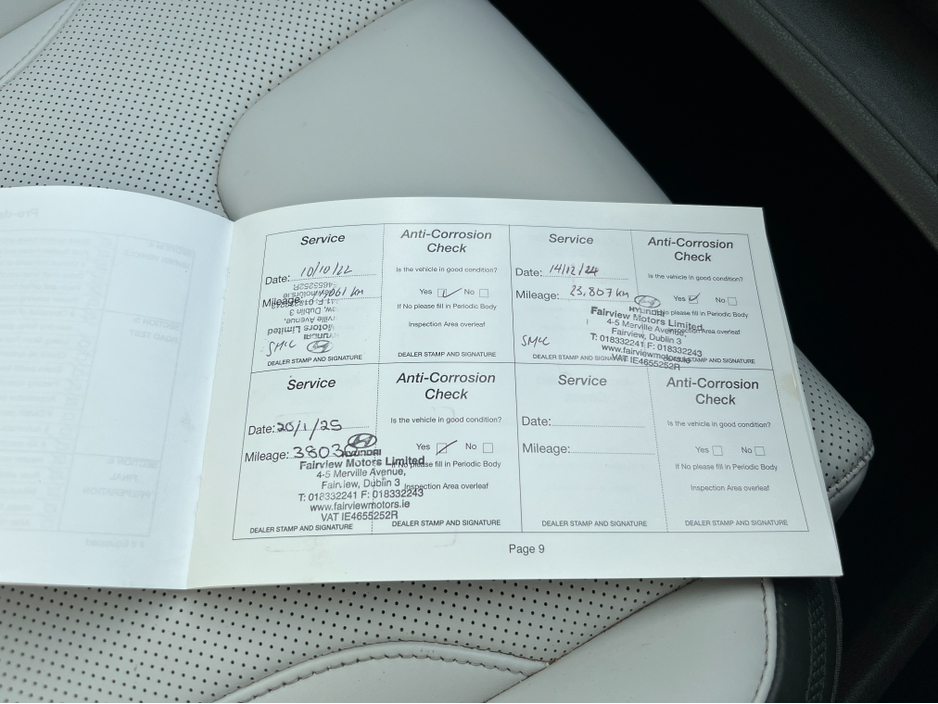 Service
Date: 10/10/22
Mileage:
SMC
DEALER STAMP AND SIGNATURE
Anti-Corrosion
Check
Is the vehicle in good condition?
Yes No
If No please fill in Periodic Body
Inspection Area overleaf
DEALER STAMP AND SIGNATURE
Service
Date: 14/12/24
Mileage: 23,807 km
HYUNDAI
Fairview Motors Limited
4-5 Merville Avenue,
Fairview, Dublin 3
T: 018332241 F: 018332243
www.fairviewmotors.ie
VAT IE4655252R
SMC
DEALER STAMP AND SIGNATURE
Anti-Corrosion
Check
Is the vehicle in good condition?
Yes No
If No please fill in Periodic Body
Inspection Area overleaf
Service
Date: 20/1/25
Mileage: 3803
HYUNDAI
Fairview Motors Limited
4-5 Merville Avenue,
Fairview, Dublin 3
T: 018332241 F: 018332243
www.fairviewmotors.ie
VAT IE4655252R
DEALER STAMP AND SIGNATURE
Anti-Corrosion
Check
Is the vehicle in good condition?
Yes No
If No please fill in Periodic Body
Inspection Area overleaf
DEALER STAMP AND SIGNATURE
Service
Date:
Mileage:
DEALER STAMP AND SIGNATURE
Anti-Corrosion
Check
Is the vehicle in good condition?
Yes No
If No please fill in Periodic Body
Inspection Area overleaf
DEALER STAMP AND SIGNATURE
Page 9